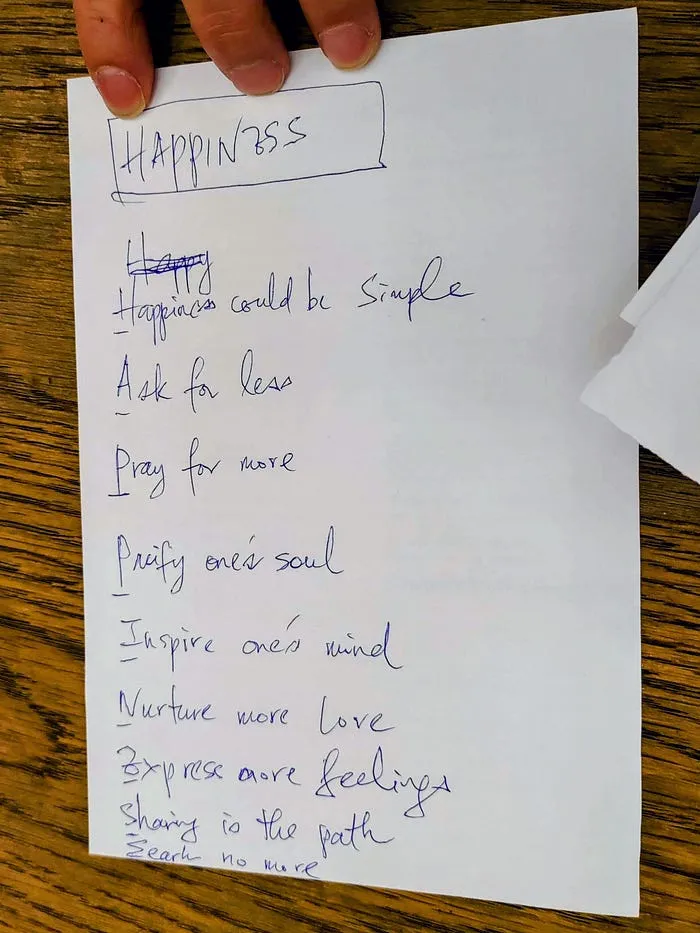 HAPPINESS
Happy
Happiness could be Simple
Ask for less
Pray for more
Pacify one's soul
Inspire one's mind
Nurture more love
Express more feelings
Sharing is the path
Search no more